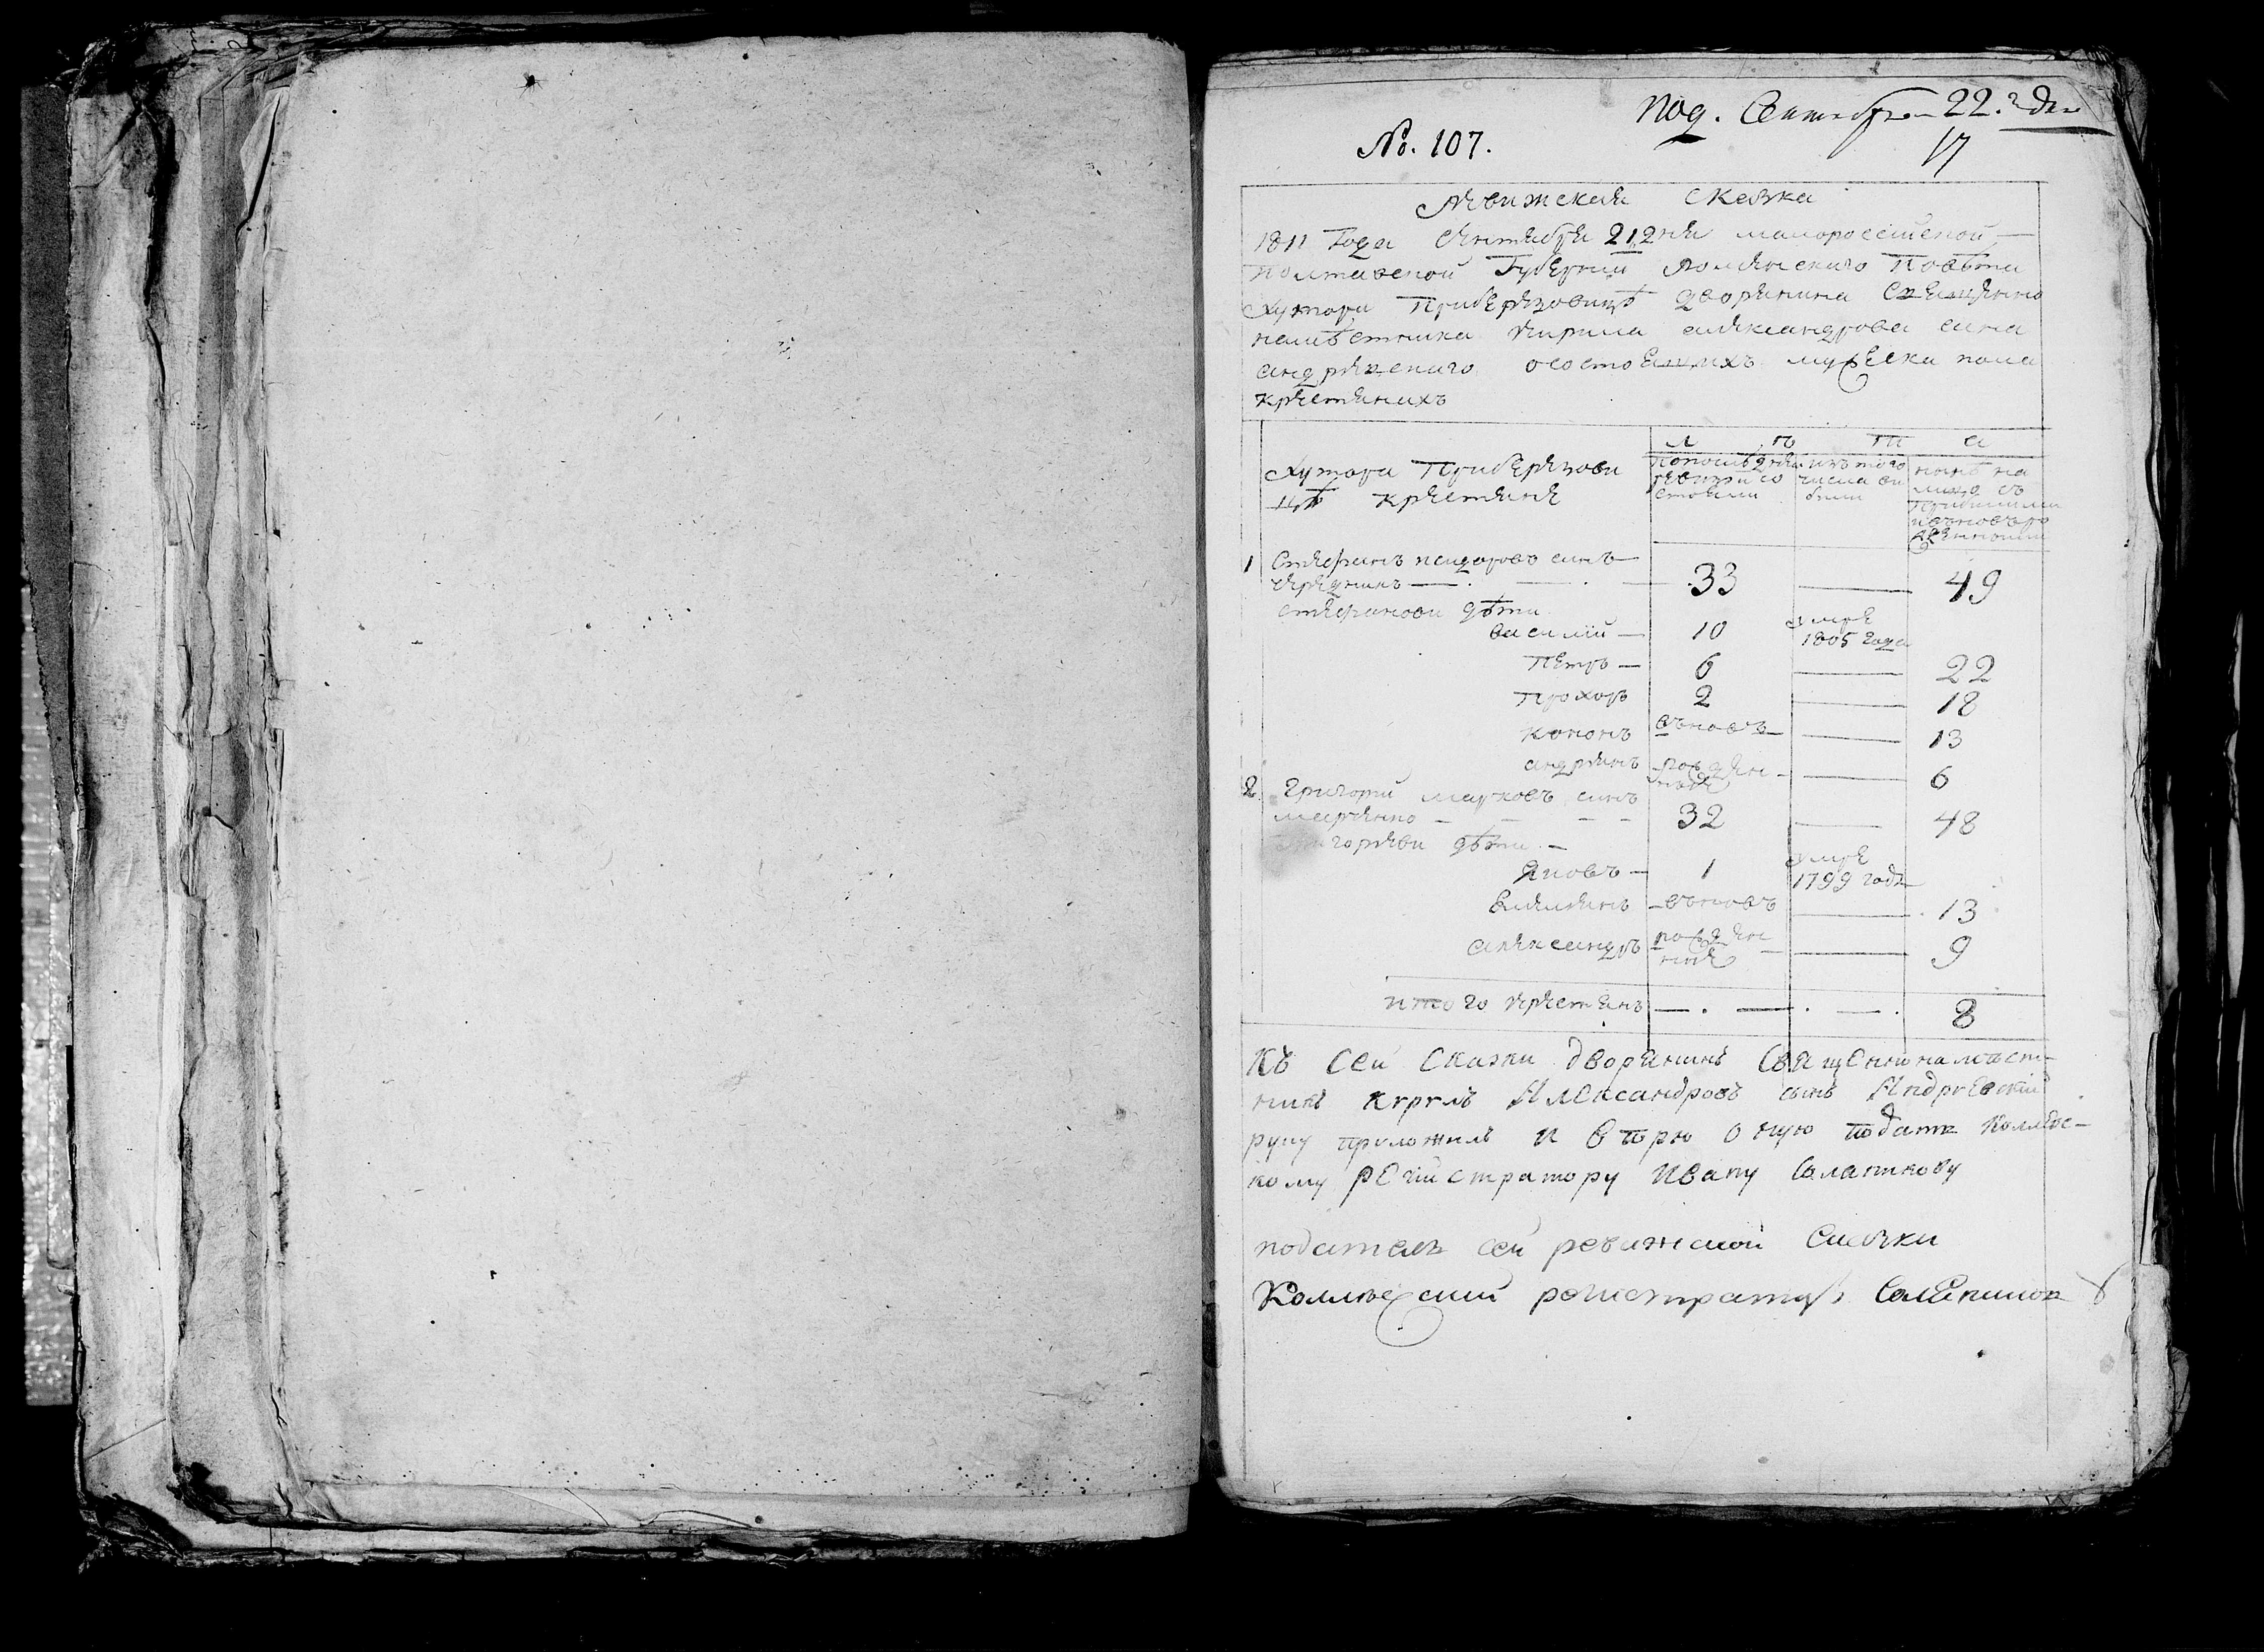 Под. Сентября 22. г Дня
№. 107.
17
Ревижская сказка
1811 Года сентября 21 дня малороссийской
полтавской Губернии Роменского Повѣта
Хутора Приберезовицѣ дворянина священно
намѣстника Кирила александрова сина
андріевского осостоящихъ мужеска пола
крестянихъ
Хутора Приберезови
цѣ крестяне
л ѣ т а
попослѣдней
ревизіи со
стояли
изъ того
числа ви
били
нынѣ на
лицо съ
прибилими
ивъновъро
жденними
1 Стефанъ сидоровъ синъ
33 49
стефанови дѣти
василій 10 умре
1805 года
Петръ 6 22
Прохоръ 2 18
кононъ въновъ 13
андреянъ рожден
ние 6
2 Григорій марковъ синъ
марченко 32 48
григореви дѣти
Яковъ 1 умре
1799 года
Емелянъ въновъ 13
александръ рожден
ние 9
итого крестянъ 8
Къ сей сказки дворянинъ Священнонамѣст-
никъ Кирилъ Александровъ сынъ Андріевскій
руку приложилъ и вѣрю оную подать Коллѣс-
кому регистратору Ивану
податель сей ревижской сказки
Коллежский регистраторъ